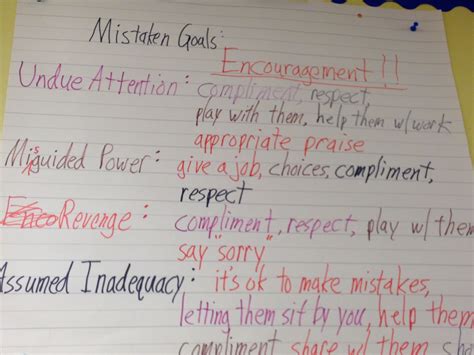 Mistaken Goals:
Encouragement!!
Undue Attention: compliment, respect,
play with them, help them w/work
appropriate praise
Misguided Power: give a job, choices, compliment,
respect
Revenge: compliment, respect, play w/ them
say "sorry"
Assumed Inadequacy: it's ok to make mistakes,
letting them sit by you, help them
compliment share w/ them